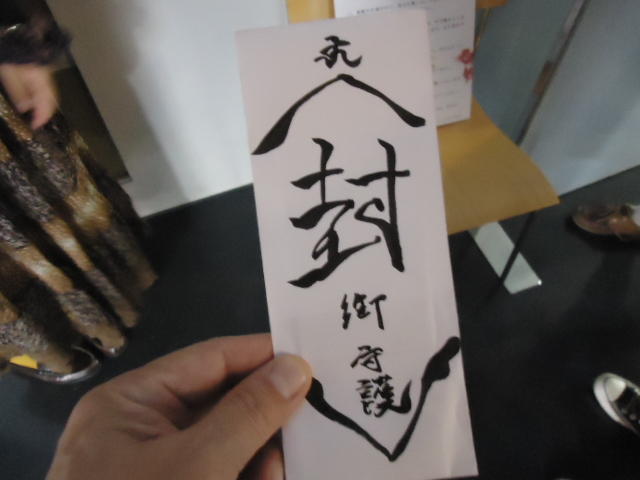 封
御
守
護